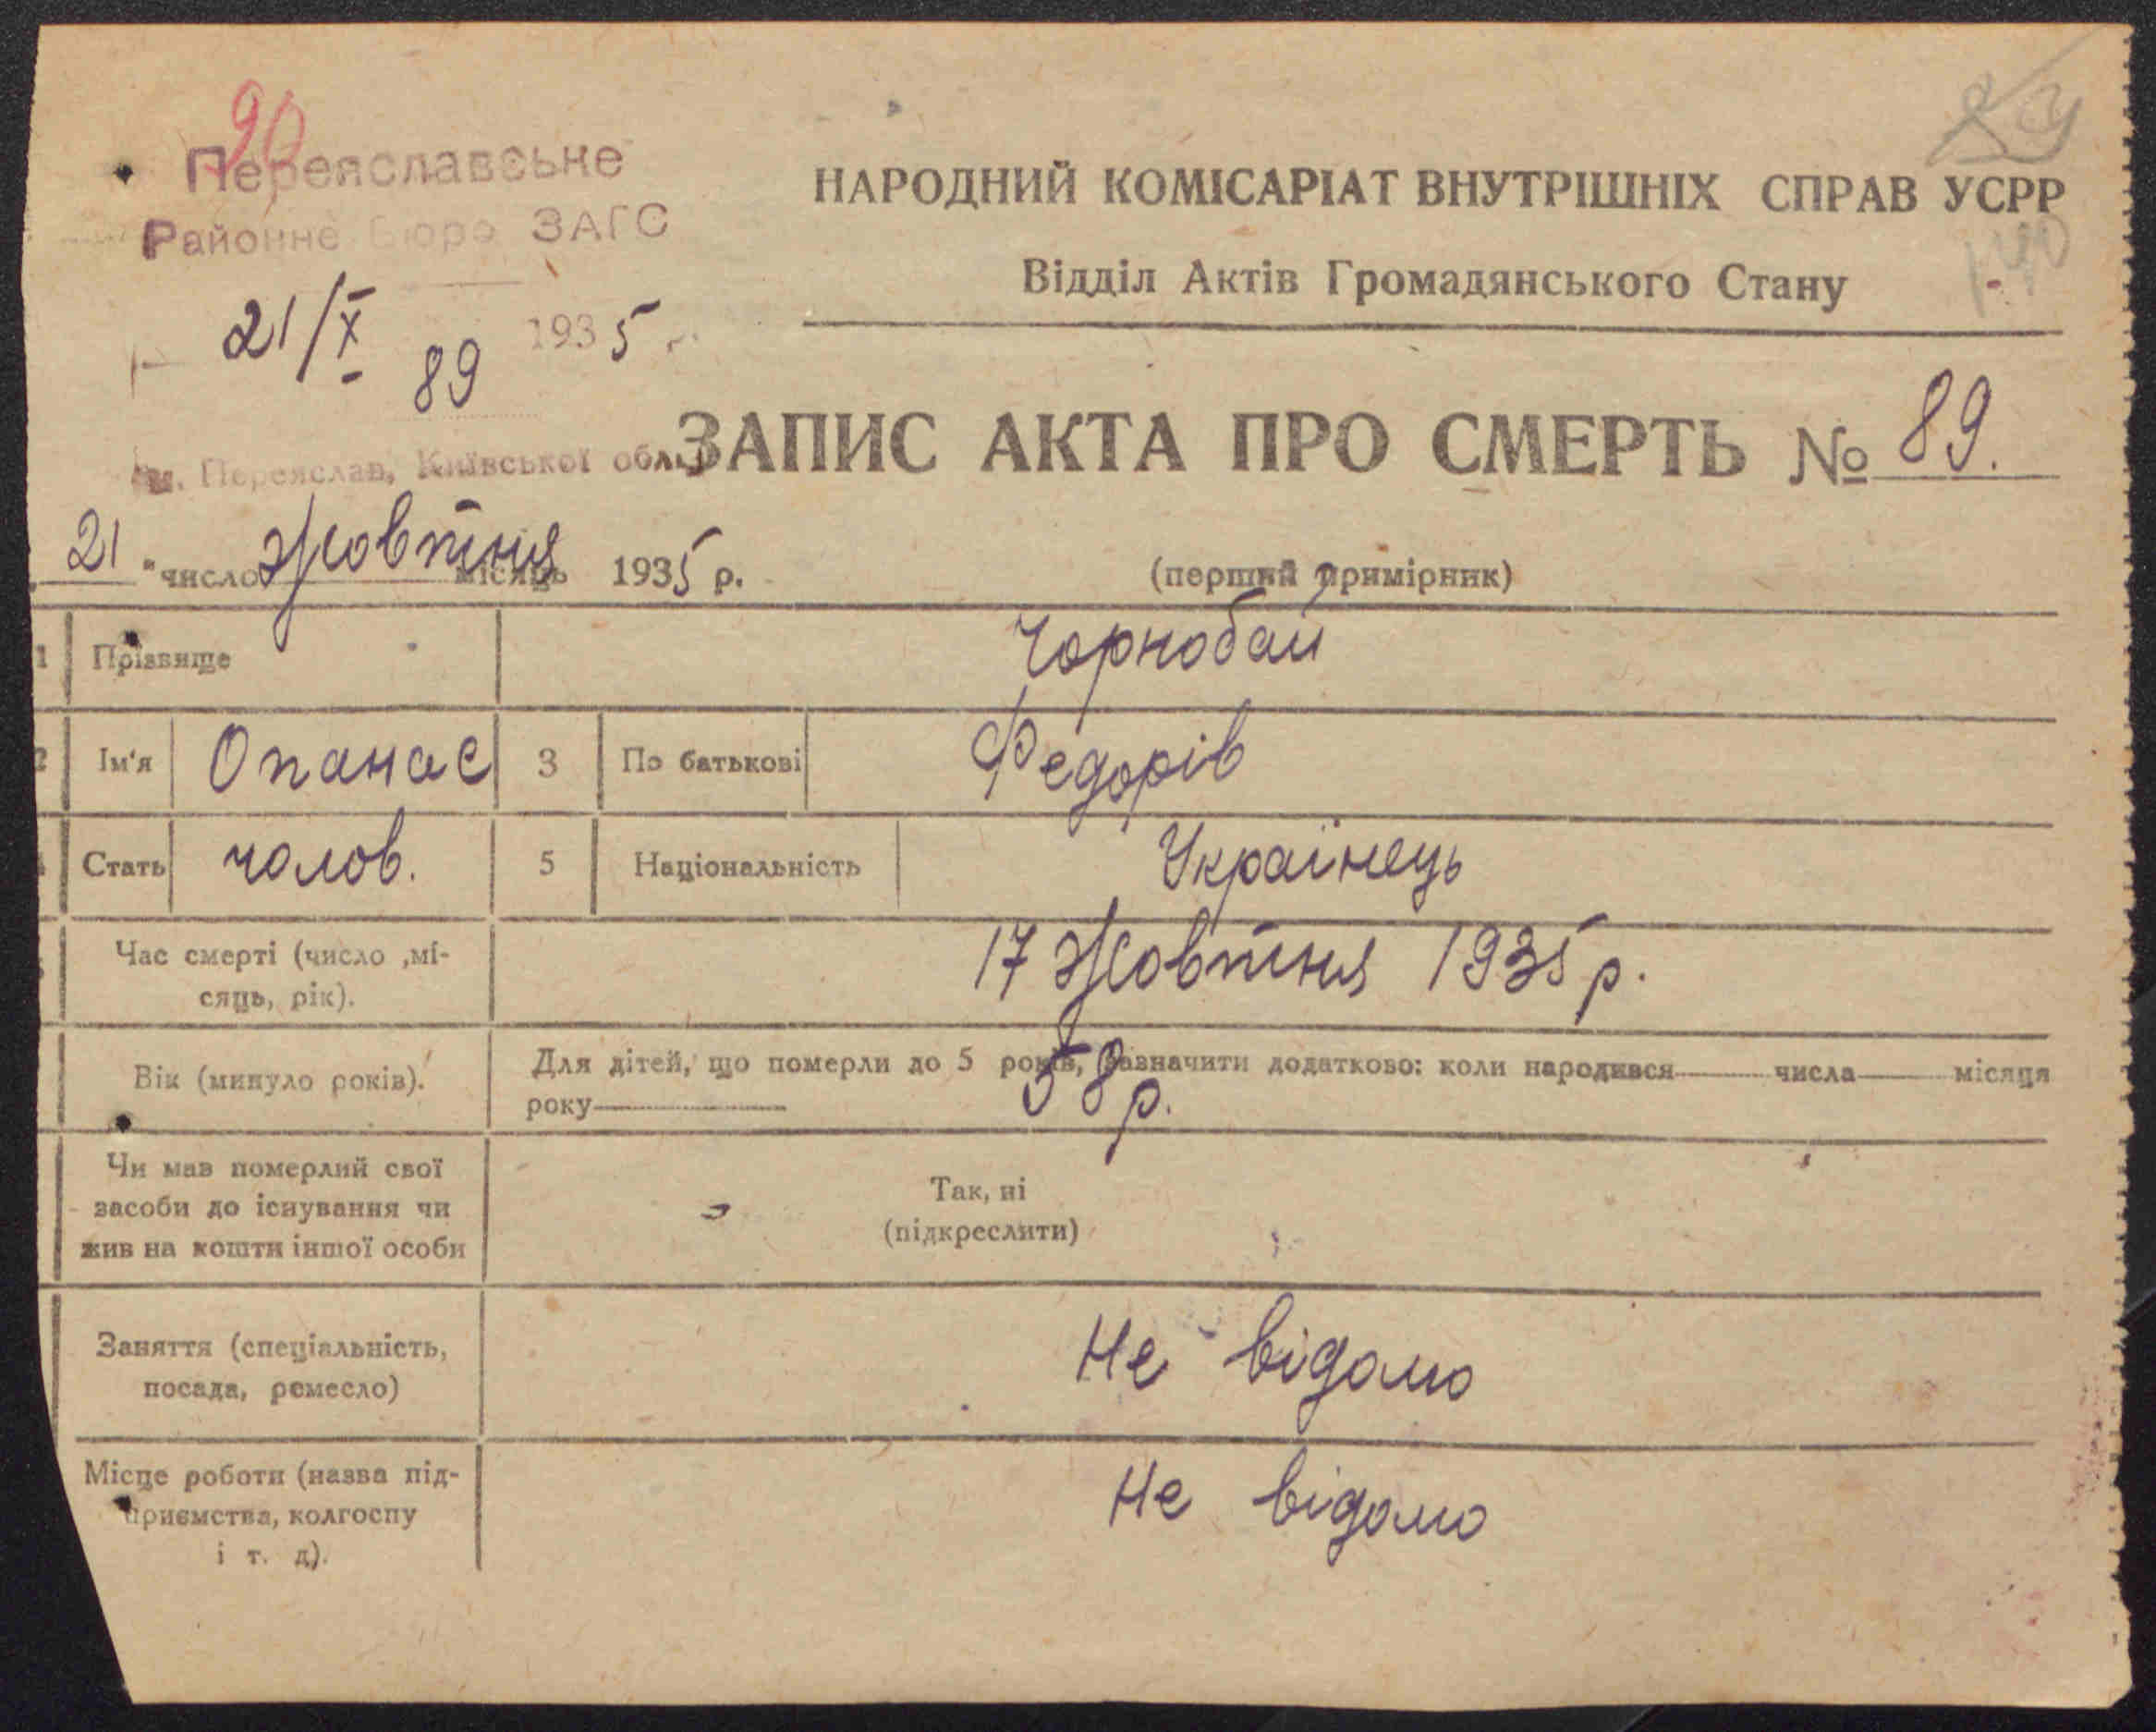 90
Переяславське
Районне бюро ЗАГС
21/X 1935 р.
89
м. Переяслав, Київської обл.
НАРОДНИЙ КОМІСАРІАТ ВНУТРІШНІХ СПРАВ УСРР
Відділ Актів Громадянського Стану
ЗАПИС АКТА ПРО СМЕРТЬ № 89.
21 " число Жовтня місяць 1935 р.
(перший примірник)
1 Прізвище Чорнобай
2 Ім'я Опанас 3 По батькові Федорів
Стать чолов. 5 Національність Українець
Час смерті (число ,мі-
сяць, рік). 17 Жовтня 1935 р.
Вік (минуло років). Для дітей, що померли до 5 років, зазначити додатково: коли народився числа місяця
року 58 р.
Чи мав померлий свої
засоби до існування чи
жив на кошти іншої особи
Так, ні
(підкреслити)
Заняття (спеціальність,
посада, ремесло) Не відомо
Місце роботи (назва під-
приємства, колгоспу
і т. д). Не відомо